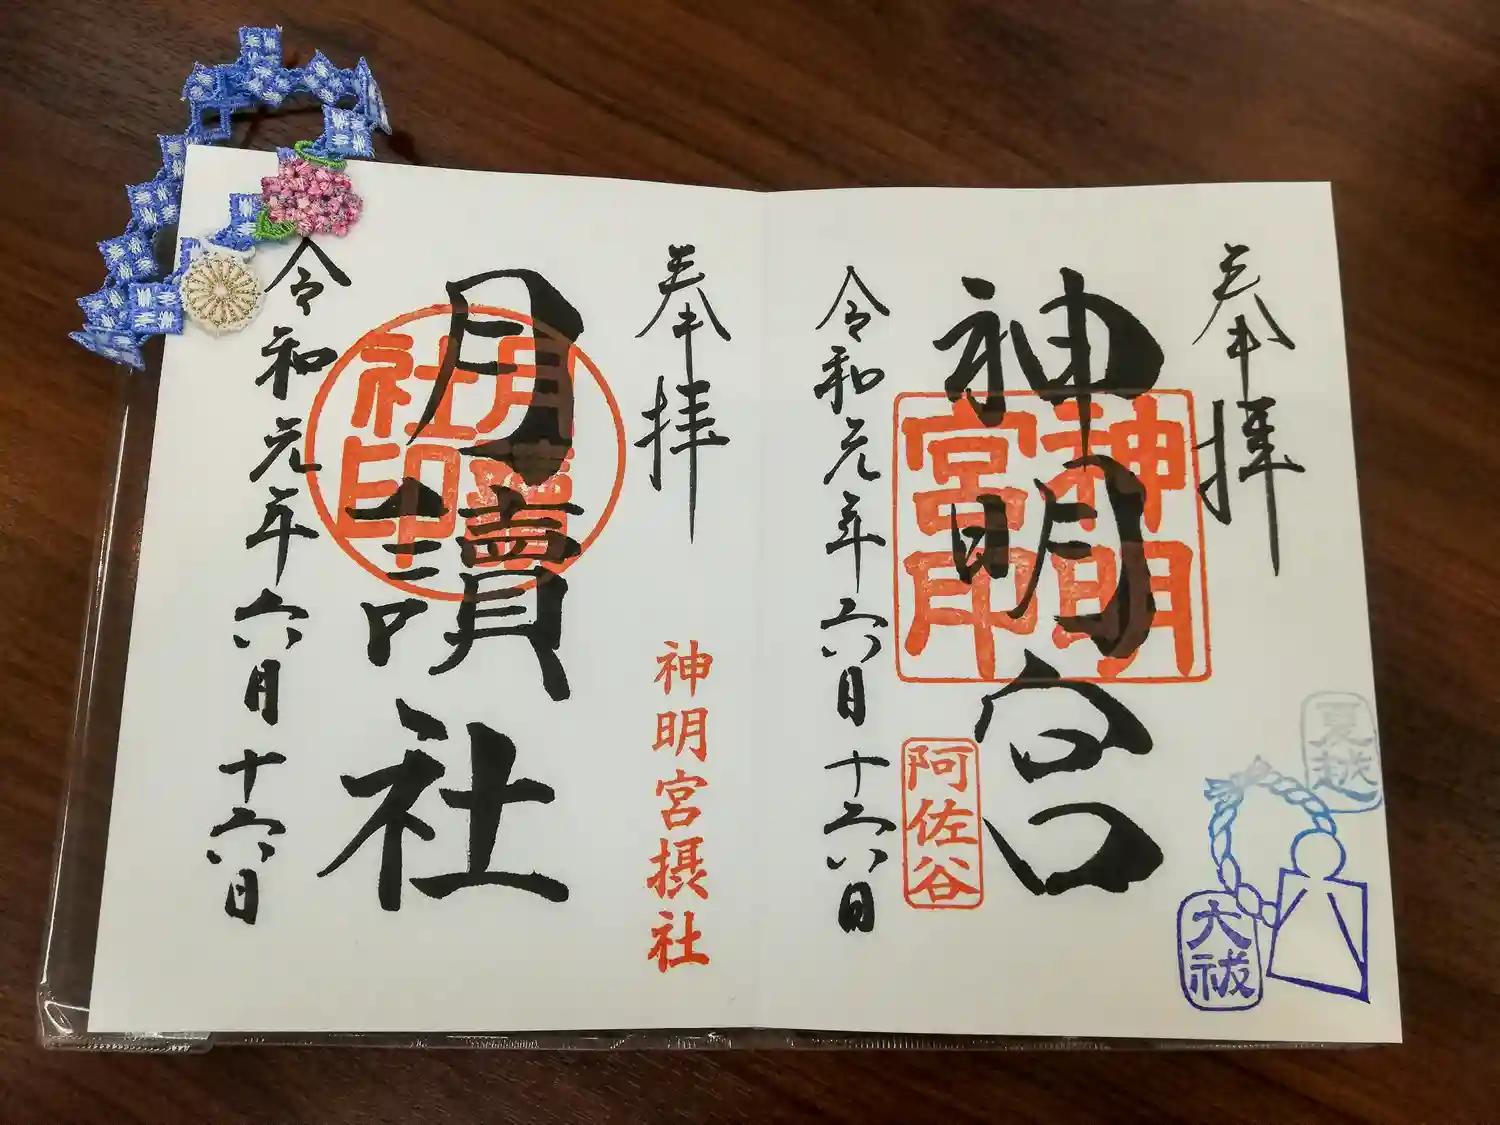 奉拝
神明宮
神明宮印
阿佐谷
令和元年六月十六日
夏越
大祓
奉拝
神明宮摂社
月讀社
月讀社印
令和元年六月十六日